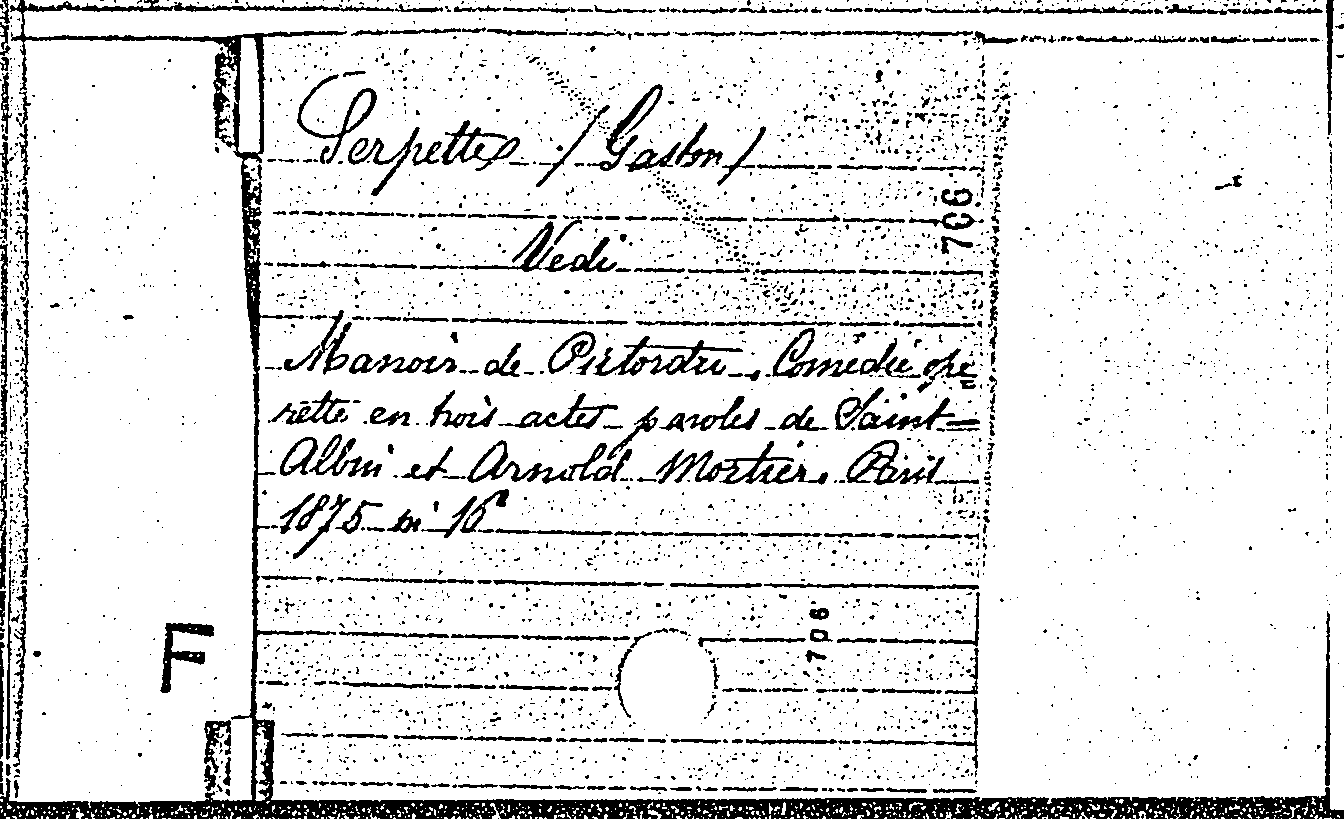 Serpette (Gaston)
706
Vedi
Manoir de Pictordu. Comédie opé
rette en trois actes paroles de Saint=
Albin et Arnold Mortier. Paris
1875 in 16º
706
F